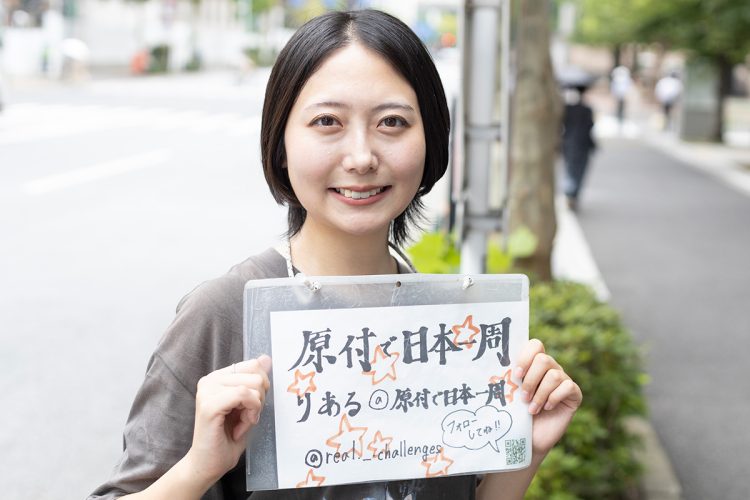 原付で日本一周
りある@原付で日本一周
フォロー
してね!!
@real_challenges